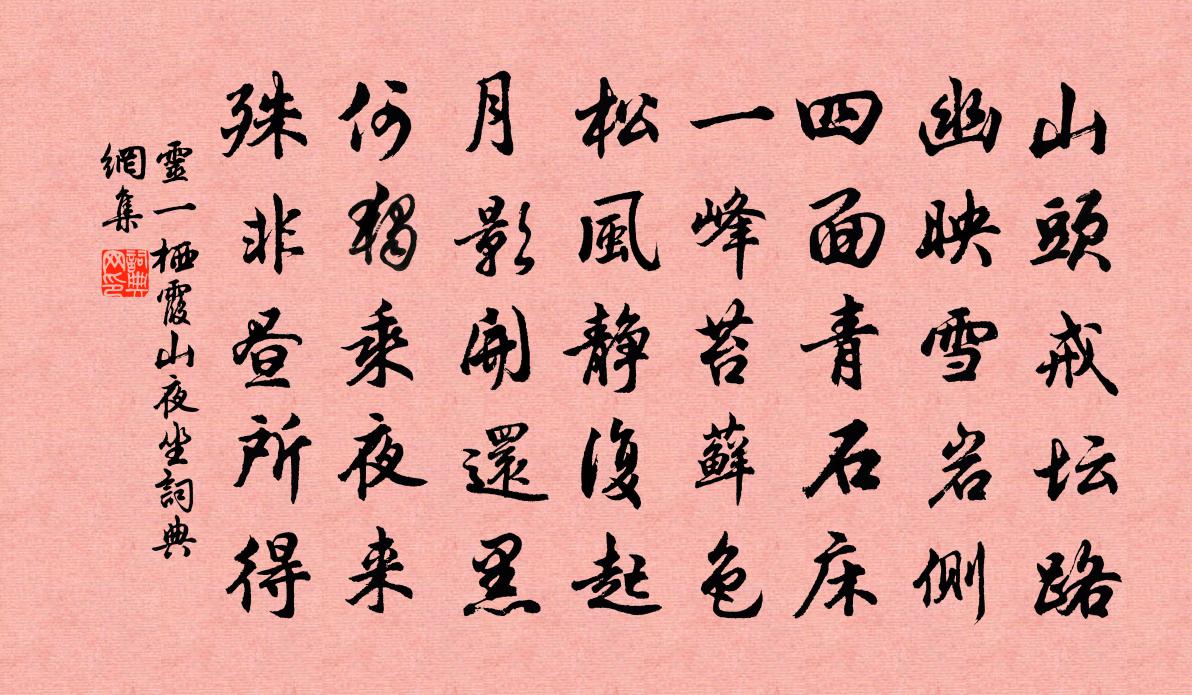 山頭戒坛路
幽映雪岩側
四面青石床
一峰苔蘚色
松風静復起
月影開還黑
何獨乘夜来
殊非昼所得
靈一栖霞山夜坐詞典
網集
詞典
网印